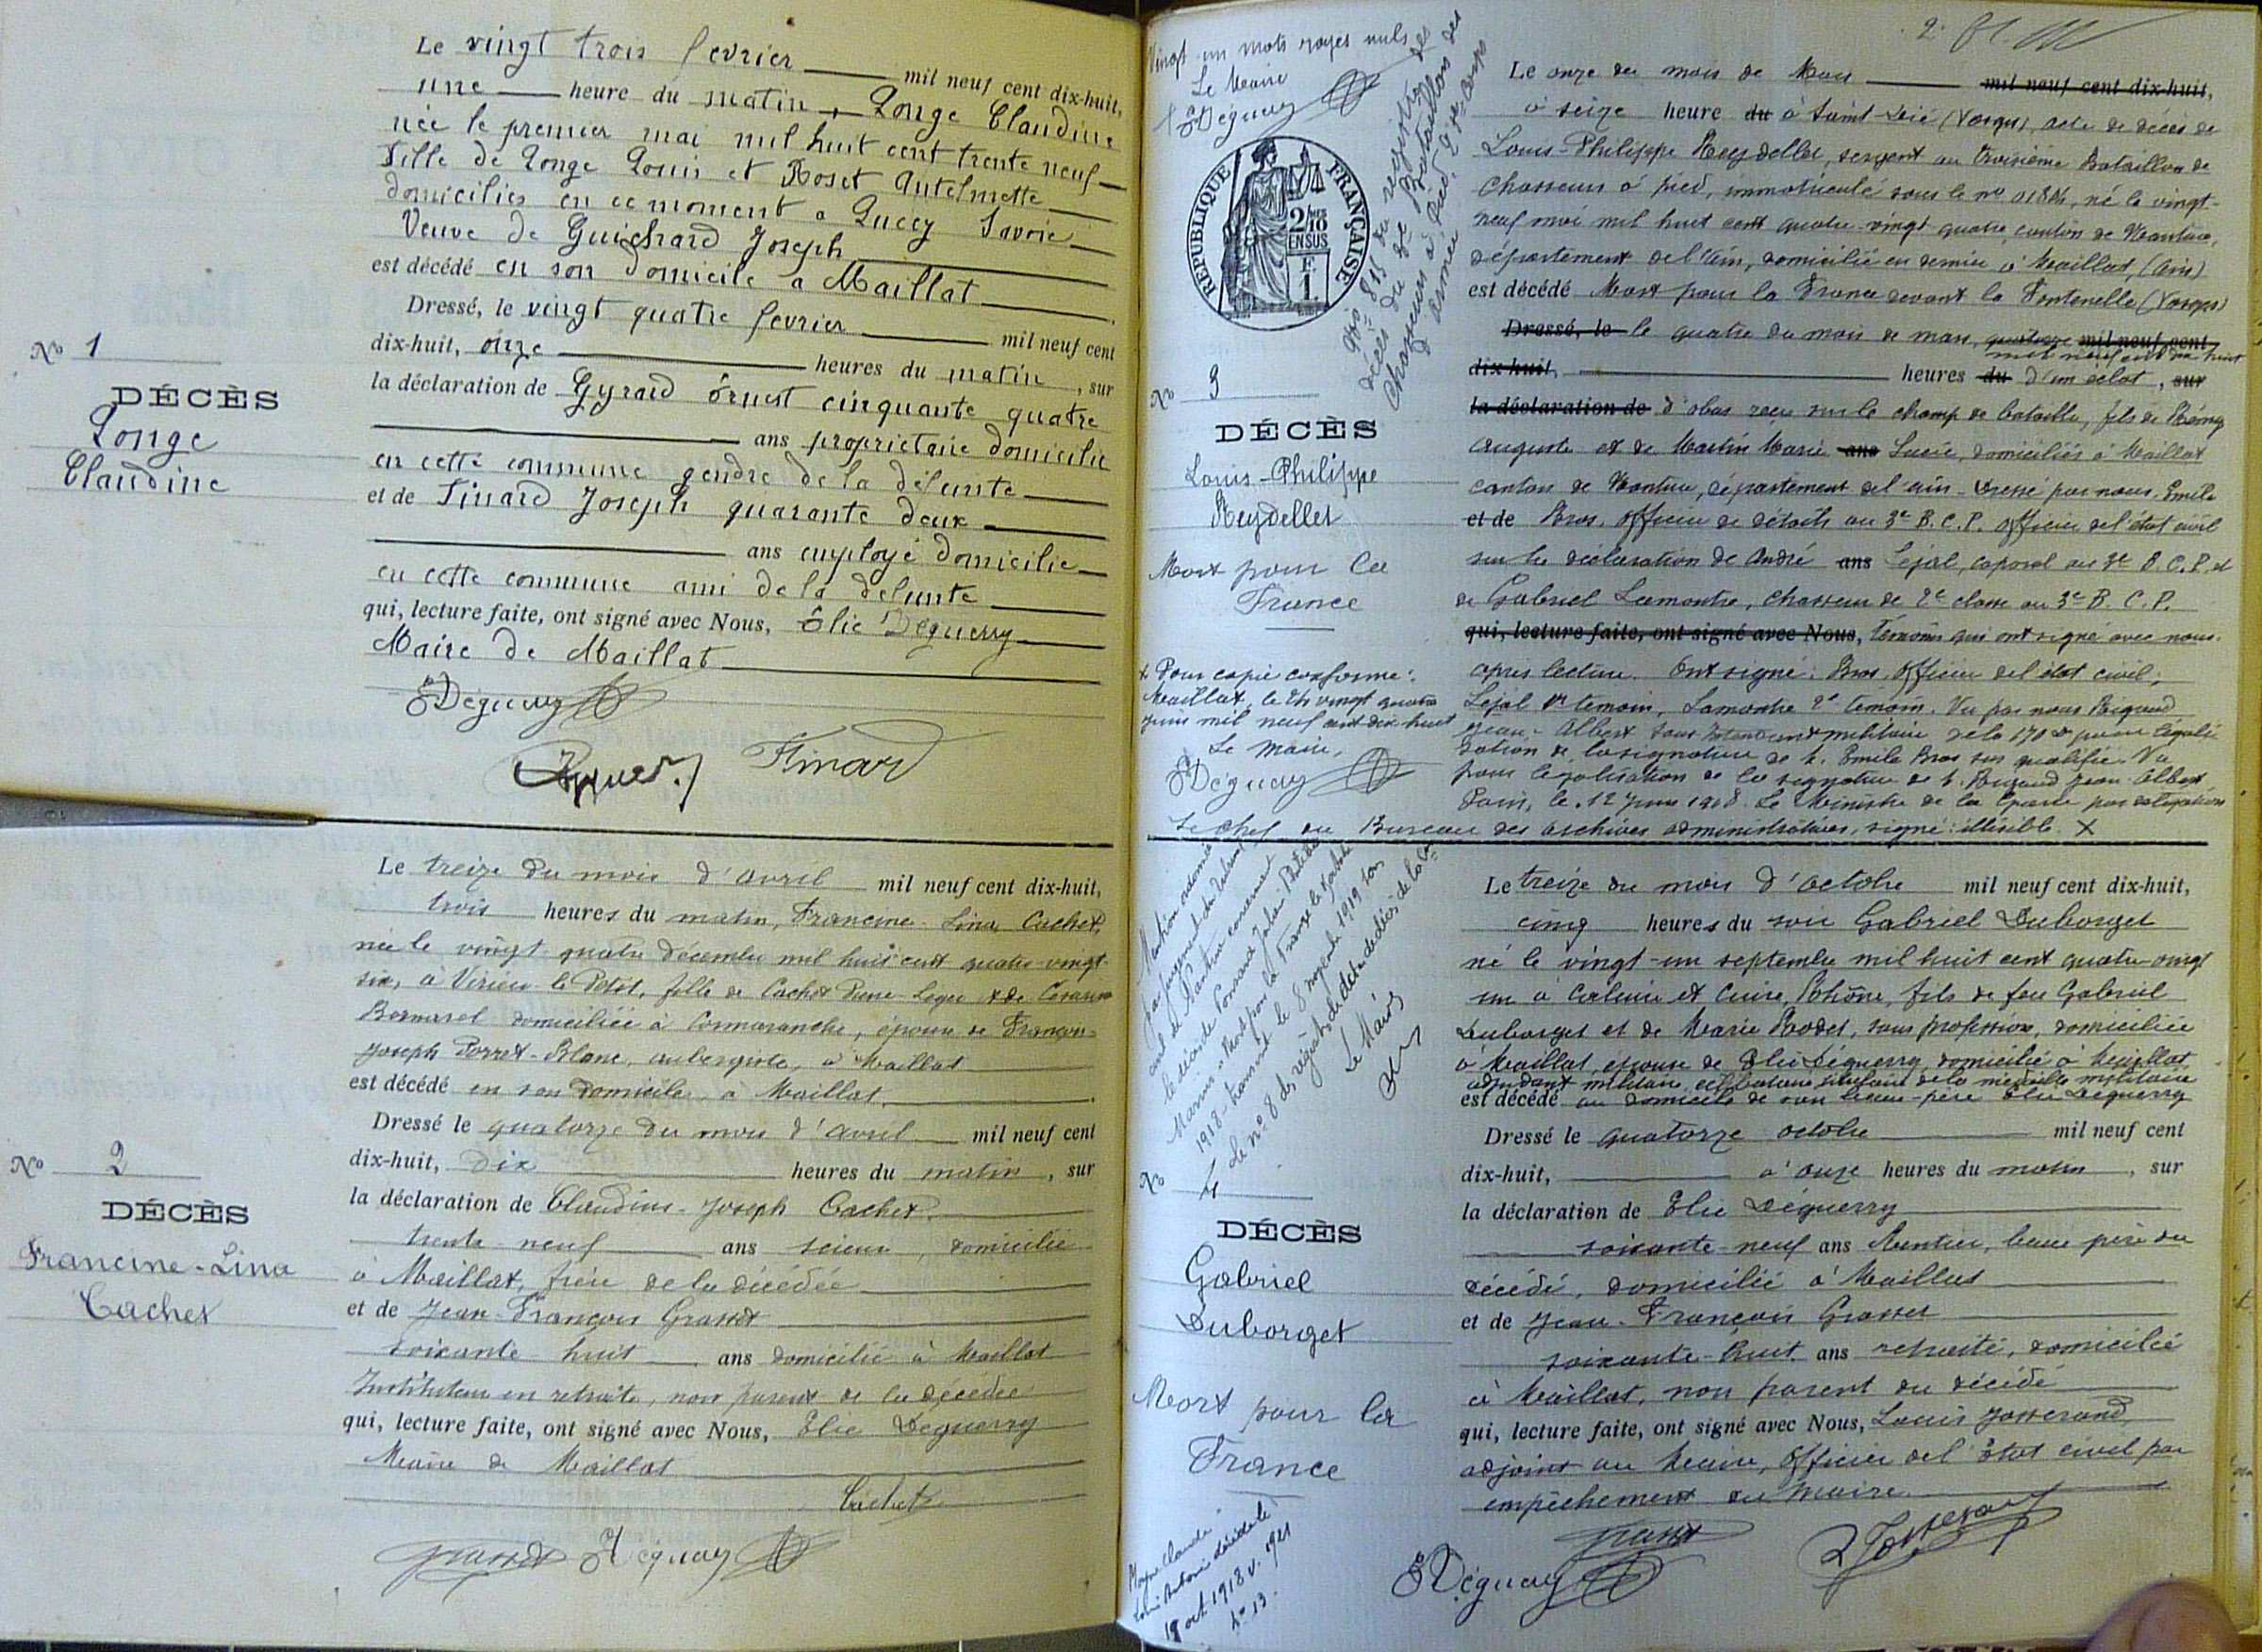 Le vingt trois fevrier mil neuf cent dix-huit,
une heure du matin, Longe Claudine
née le premier mai mil huit cent trente neuf
Fille de Longe Louis et Roset Antelmette
domiciliés en ce moment a Lucey Savoie
Veuve de Guichard Joseph
est décédé en son domicile a Maillat
Dressé, le vingt quatre fevrier mil neuf cent
dix-huit, onze heures du matin, sur
la déclaration de Gyrard Ernest cinquante quatre
ans proprietaire domicilié
en cette commune gendre de la défunte
et de Finard Joseph quarante deux
ans employé domicilié
en cette commune ami de la defunte
qui, lecture faite, ont signé avec Nous, Élie Déguerry
Maire de Maillat
EDéguerry
Finard
No 1
DÉCÈS
Longe
Claudine
Le treize du mois d'avril mil neuf cent dix-huit,
trois heures du matin, Francine-Lina Cachet,
née le vingt quatre décembre mil huit cent quatre-vingt
six, à Virieu-le-Petit, fille de Cachet Pierre-Leger et de
domiciliée à Cormaranche, épouse de François-
Joseph Porret-Blanc, aubergiste, à Maillat
est décédé en son domicile à Maillat.
Dressé le quatorze du mois d'avril mil neuf cent
dix-huit, dix heures du matin, sur
la déclaration de Claudius-Joseph Cachet
trente-neuf ans scieur, domicilié
à Maillat, frère de la décédée
et de Jean-François Grasset
soixante huit ans domicilié à Maillat
Instituteur en retraite, non parent de la décédée
qui, lecture faite, ont signé avec Nous, Elie Déguerry
Maire de Maillat
Cachet
Grasset EDéguerry
No 2
DÉCÈS
Francine-Lina
Cachet
Vingt-un mots rayés nuls
Le Maire
EDéguerry
REPUBLIQUE FRANÇAISE
2/10 EN SUS
F. 1.
du registre des
décès du 3e Bataillon des
Chasseurs à pied, 21e corps
d'armée
No 3
DÉCÈS
Louis-Philippe
Reydellet
Mort pour la
France
X Pour copie conforme:
Maillat, le 24 vingt quatre
juin mil neuf cent dix-huit
Le Maire,
EDéguerry
Le onze du mois de Mars mil neuf cent dix-huit,
à seize heure du à Saint-Dié (Vosges) acte de décès de
Louis-Philippe Reydellet, sergent au troisième Bataillon de
Chasseurs à pied, immatriculé sous le no 01814, né le vingt-
neuf mai mil huit cent quatre-vingt quatre, canton de Nantua,
département de l'Ain, domicilié en dernier à Maillat, (Ain)
est décédé Mort pour la France devant la Fontenelle (Vosges)
Dressé, le le quatre du mois de mars, quatorze mil neuf cent
mil neuf cent dix huit
dix-huit, heures du d'un éclat, sur
la déclaration de d'obus reçu sur le champ de bataille, fils de Rémy
Auguste et de Martin Marie ans Lucie, domiciliés à Maillat
canton de Nantua, département de l'Ain - Dressé par nous, Emile
et de Bros, officier de détails au 3e B.C.P. officier de l'état civil
sur la déclaration de André ans Lejal, caporal au 3e B.C.P. et
de Gabriel Lamontre, chasseur de 2e classe au 3e B.C.P.
qui, lecture faite, ont signé avec Nous, témoins qui ont signé avec nous
après lecture. Ont signé: Bros, officier de l'état civil;
Lejal 1er témoin, Lamontre 2e témoin. Vu par nous Rigaud
Jean-Albert sous Intendant militaire de la 170e pour légali
sation de la signature de M. Emile Bros sus qualifié. Vu
pour légalisation de la signature de M. Rigaud Jean-Albert
Paris, le 12 juin 1918. Le Ministre de la Guerre par délégation
Le Chef du Bureau des archives administratives, signé: illisible. X
Mention ordonnée
par jugement du tribunal
civil de Nantua concernant
le décès de
Mort pour la France le
1918 transcrit le 8 1919 sous
Le no 8 des registres de décès de la Cne
Le Maire
No 4
DÉCÈS
Gabriel
Duborget
Mort pour la
France
décédé le
18 oct 1918 v. 1921
no 13.
Le treize du mois d'octobre mil neuf cent dix-huit,
cinq heures du soir Gabriel Duborget
né le vingt-un septembre mil huit cent quatre-vingt
un à Caluire et Cuire, Rhône, fils de feu Gabriel
Duborget et de Marie Rodet, sans profession, domiciliée
à Maillat, epoux de Elie Déguerry, domicilié à Maillat,
adjudant militaire, titulaire de la médaille militaire
est décédé au domicile de son beau-père Elie Déguerry
Dressé le quatorze octobre mil neuf cent
dix-huit, à onze heures du matin, sur
la déclaration de Elie Déguerry
soixante-neuf ans Rentier, beau père du
décédé, domicilié à Maillat
et de Jean-François Grasset
soixante-huit ans retraité, domicilié
à Maillat, non parent du décédé
qui, lecture faite, ont signé avec Nous, Louis Josserand,
adjoint au Maire, officier de l'état civil par
empêchement du Maire
Grasset
EDéguerry
LJosserand